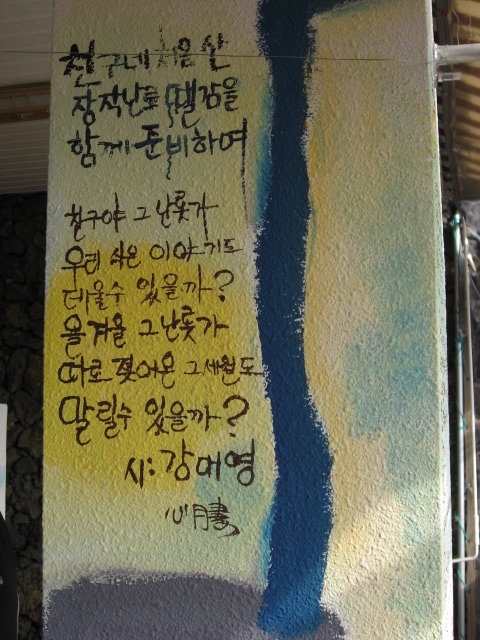 친구네 처음 산
장작난로 땔감을
함께 준비하며
친구야 그 난롯가
우리 식은 이야기도
데울수 있을까?
올겨울 그 난롯가
따로 젖어온 그 세월도
말릴수 있을까?
시: 강머영
心月書